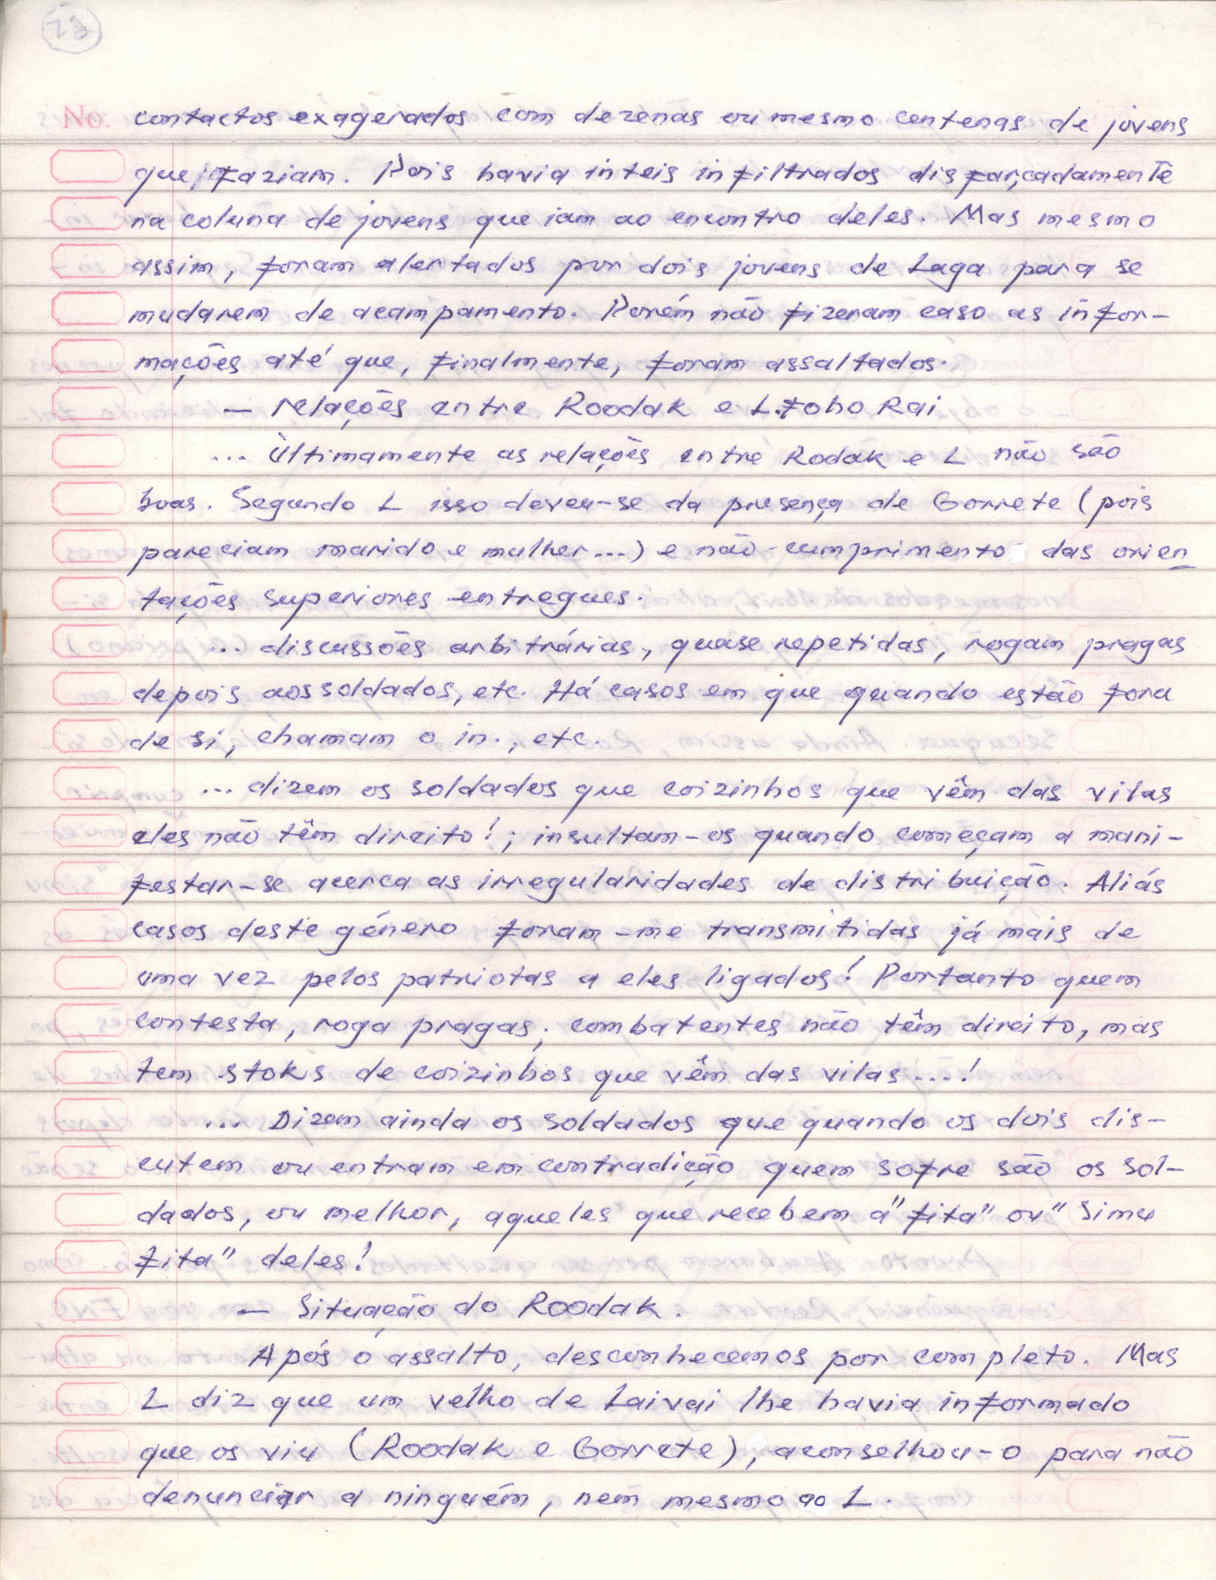 23
No. contactos exagerados com dezenas ou mesmo centenas de jovens
que faziam. Pois havia inteis infiltrados disfarçadamente
na coluna de jovens que iam ao encontro deles. Mas mesmo
assim, foram alertados por dois jovens de Laga para se
mudarem de acampamento. Porém não fizeram caso as infor-
mações até que, finalmente, foram assaltados.
— relações entre Roodak e L.Foho Rai
... Ùltimamente as relações entre Rodak e L não são
boas. Segundo L isso deveu-se da presença de Gorrete (pois
pareciam marido e mulher...) e não-cumprimento das orien
tações superiores entregues.
... discussões arbitrárias, quase repetidas, rogam pragas
depois aos soldados, etc. Há casos em que quando estão fora
de si, chamam o in., etc.
... dizem os soldados que coizinhos que vêm das vilas
eles não têm direito!; insultam-os quando começam a mani-
festar-se acerca as irregularidades de distribuição. Aliás
casos deste género foram-me transmitidas já mais de
uma vez pelos patriotas a eles ligados! Portanto quem
contesta, roga pragas; combatentes não têm direito, mas
tem stoks de coizinhos que vêm das vilas...!
... Dizem ainda os soldados que quando os dois dis-
cutem ou entram em contradição quem sofre são os sol-
dados, ou melhor, aqueles que recebem a "fita" ou "simu
fita" deles!
— Situação do Roodak.
Após o assalto, desconhecemos por completo. Mas
L diz que um velho de Laivai lhe havia informado
que os viu (Roodak e Gorrete), aconselhou-o para não
denunciar a ninguém, nem mesmo ao L.